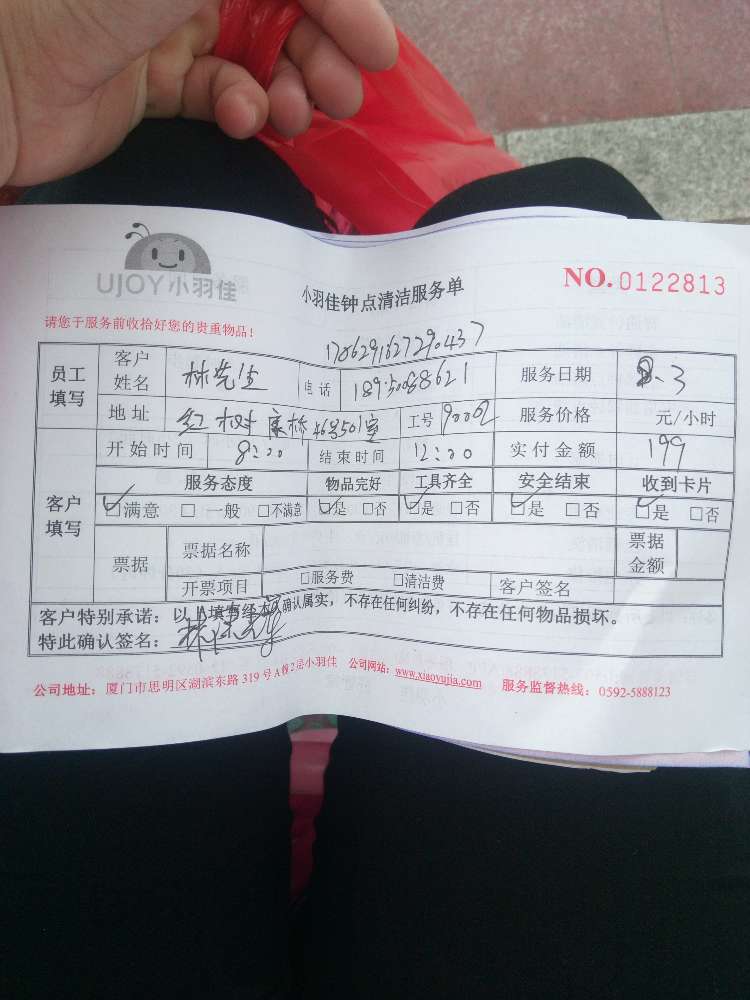 UJOY小羽佳
小羽佳钟点清洁服务单
NO.0122813
请您于服务前收拾好您的贵重物品!
1706291627290437
员工填写 客户姓名 林先生 电话 服务日期 8.3
地址 红树康桥 501室 工号 90002 服务价格 元/小时
客户填写 开始时间 8:00 结束时间 12:00 实付金额 199
服务态度 物品完好 工具齐全 安全结束 收到卡片
☑满意 □一般 □不满意 ☑是 □否 ☑是 □否 ☑是 □否 ☑是 □否
票据 票据名称 票据金额
开票项目 □服务费 □清洁费 客户签名
客户特别承诺:以上填写经本人确认属实,不存在任何纠纷,不存在任何物品损坏。
特此确认签名:
公司地址:厦门市思明区湖滨东路 319 号 A 栋 2 层小羽佳 公司网站:www.xiaoyujia.com 服务监督热线:0592-5888123